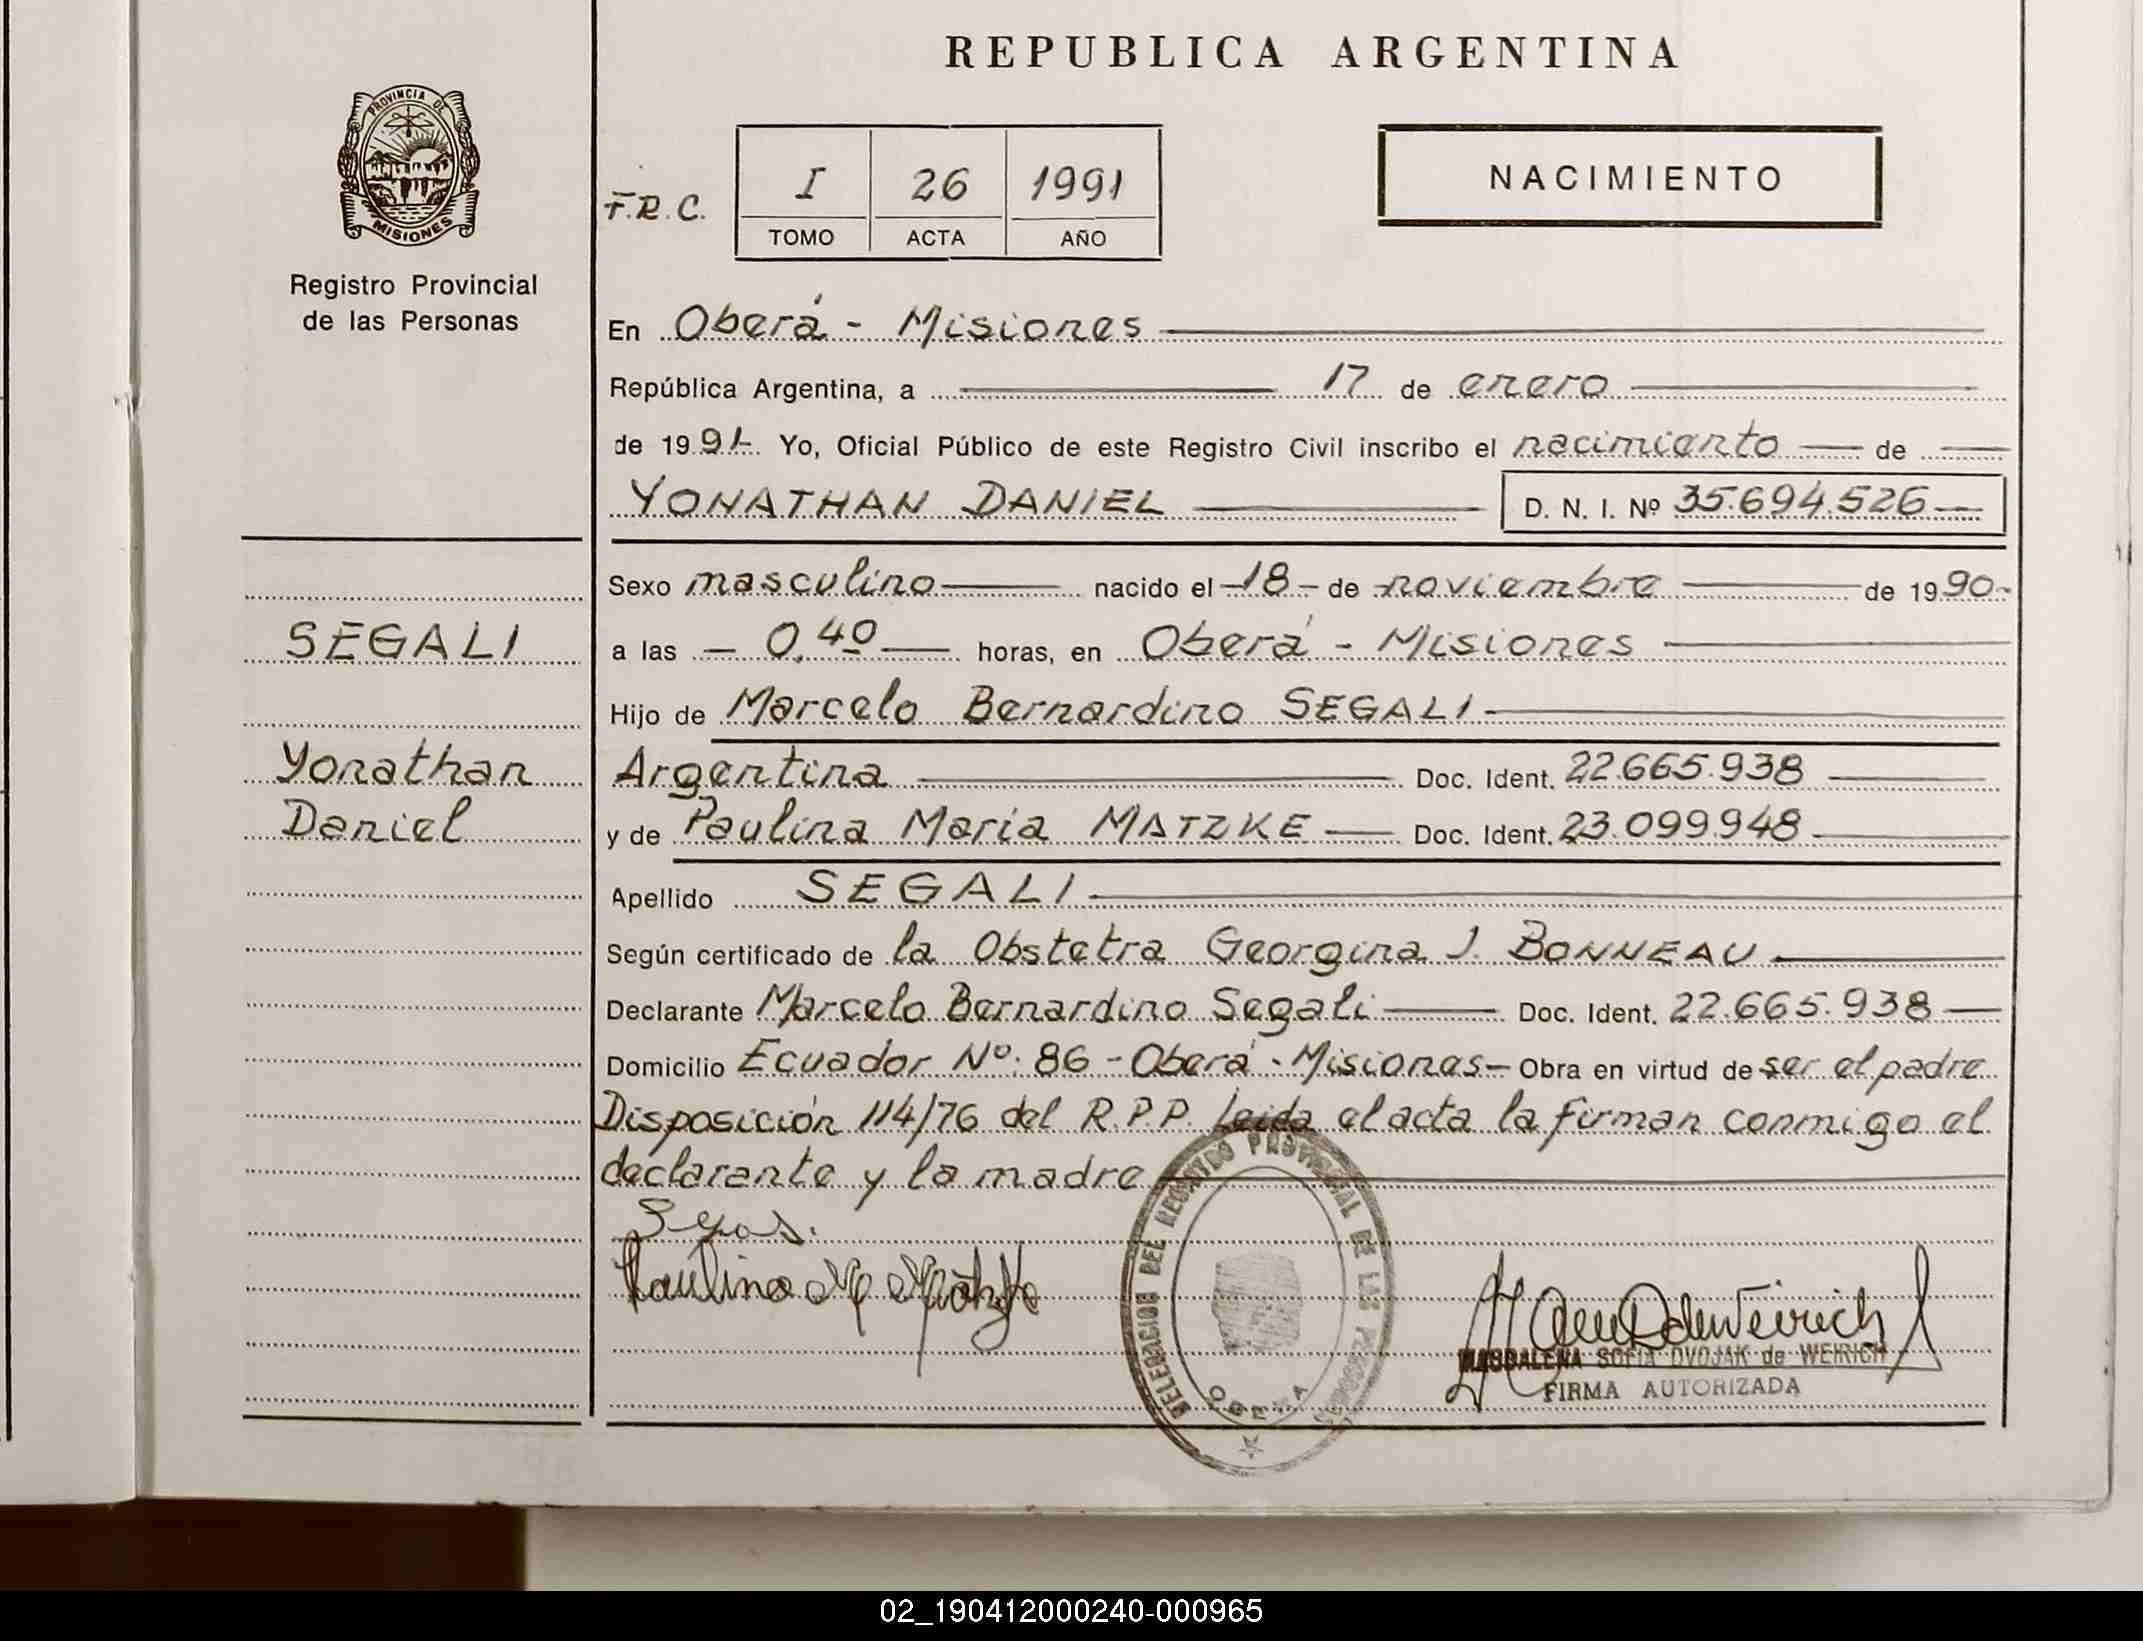 REPUBLICA ARGENTINA
PROVINCIA DE
MISIONES
Registro Provincial
de las Personas
F.R.C.
I 26 1991
TOMO ACTA AÑO
NACIMIENTO
En Oberá - Misiones
República Argentina, a 17 de enero
de 1991. Yo, Oficial Público de este Registro Civil inscribo el nacimiento de
YONATHAN DANIEL D. N. I. Nº 35.694.526
Sexo masculino nacido el 18 de noviembre de 1990
a las 0,40 horas, en Oberá - Misiones
Hijo de Marcelo Bernardino SEGALI
Argentina Doc. Ident. 22.665.938
y de Paulina Maria MATZKE Doc. Ident. 23.099.948
Apellido SEGALI
Según certificado de la Obstetra Georgina J. BONNEAU
Declarante Marcelo Bernardino Segali Doc. Ident. 22.665.938
Domicilio Ecuador Nº: 86 - Oberá - Misiones - Obra en virtud de ser el padre
Disposición 114/76 del R.P.P. Leida el acta la firman conmigo el
declarante y la madre
SEGALI
Yonathan
Daniel
Paulina M Matzke
DELEGACION DEL REGISTRO PROVINCIAL DE LAS PERSONAS
OBERA
MAGDALENA SOFIA DVOJAK de WEIRICH
FIRMA AUTORIZADA
02_190412000240-000965